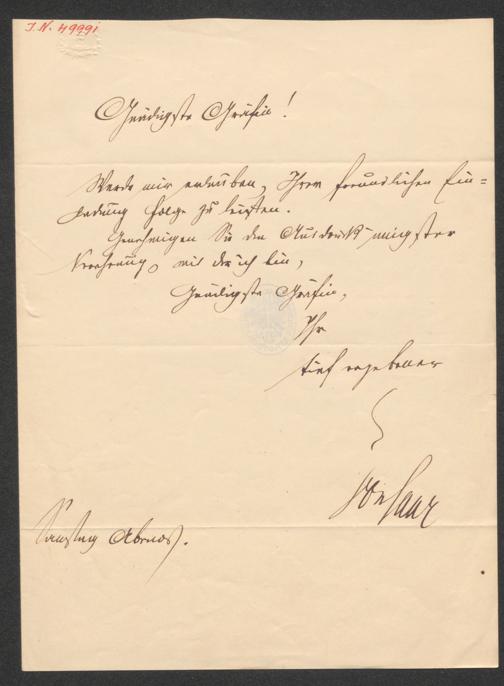 I.N. 49991
Gnädigste Gräfin!
Werde mir erlauben, Ihrer freundlichen Ein=
ladung Folge zu leisten.
Genehmigen Sie den Ausdruck innigster
Verehrung, mit der ich bin,
Gnädigste Gräfin,
Ihr
tief ergebener
Saar
Samstag Abends.